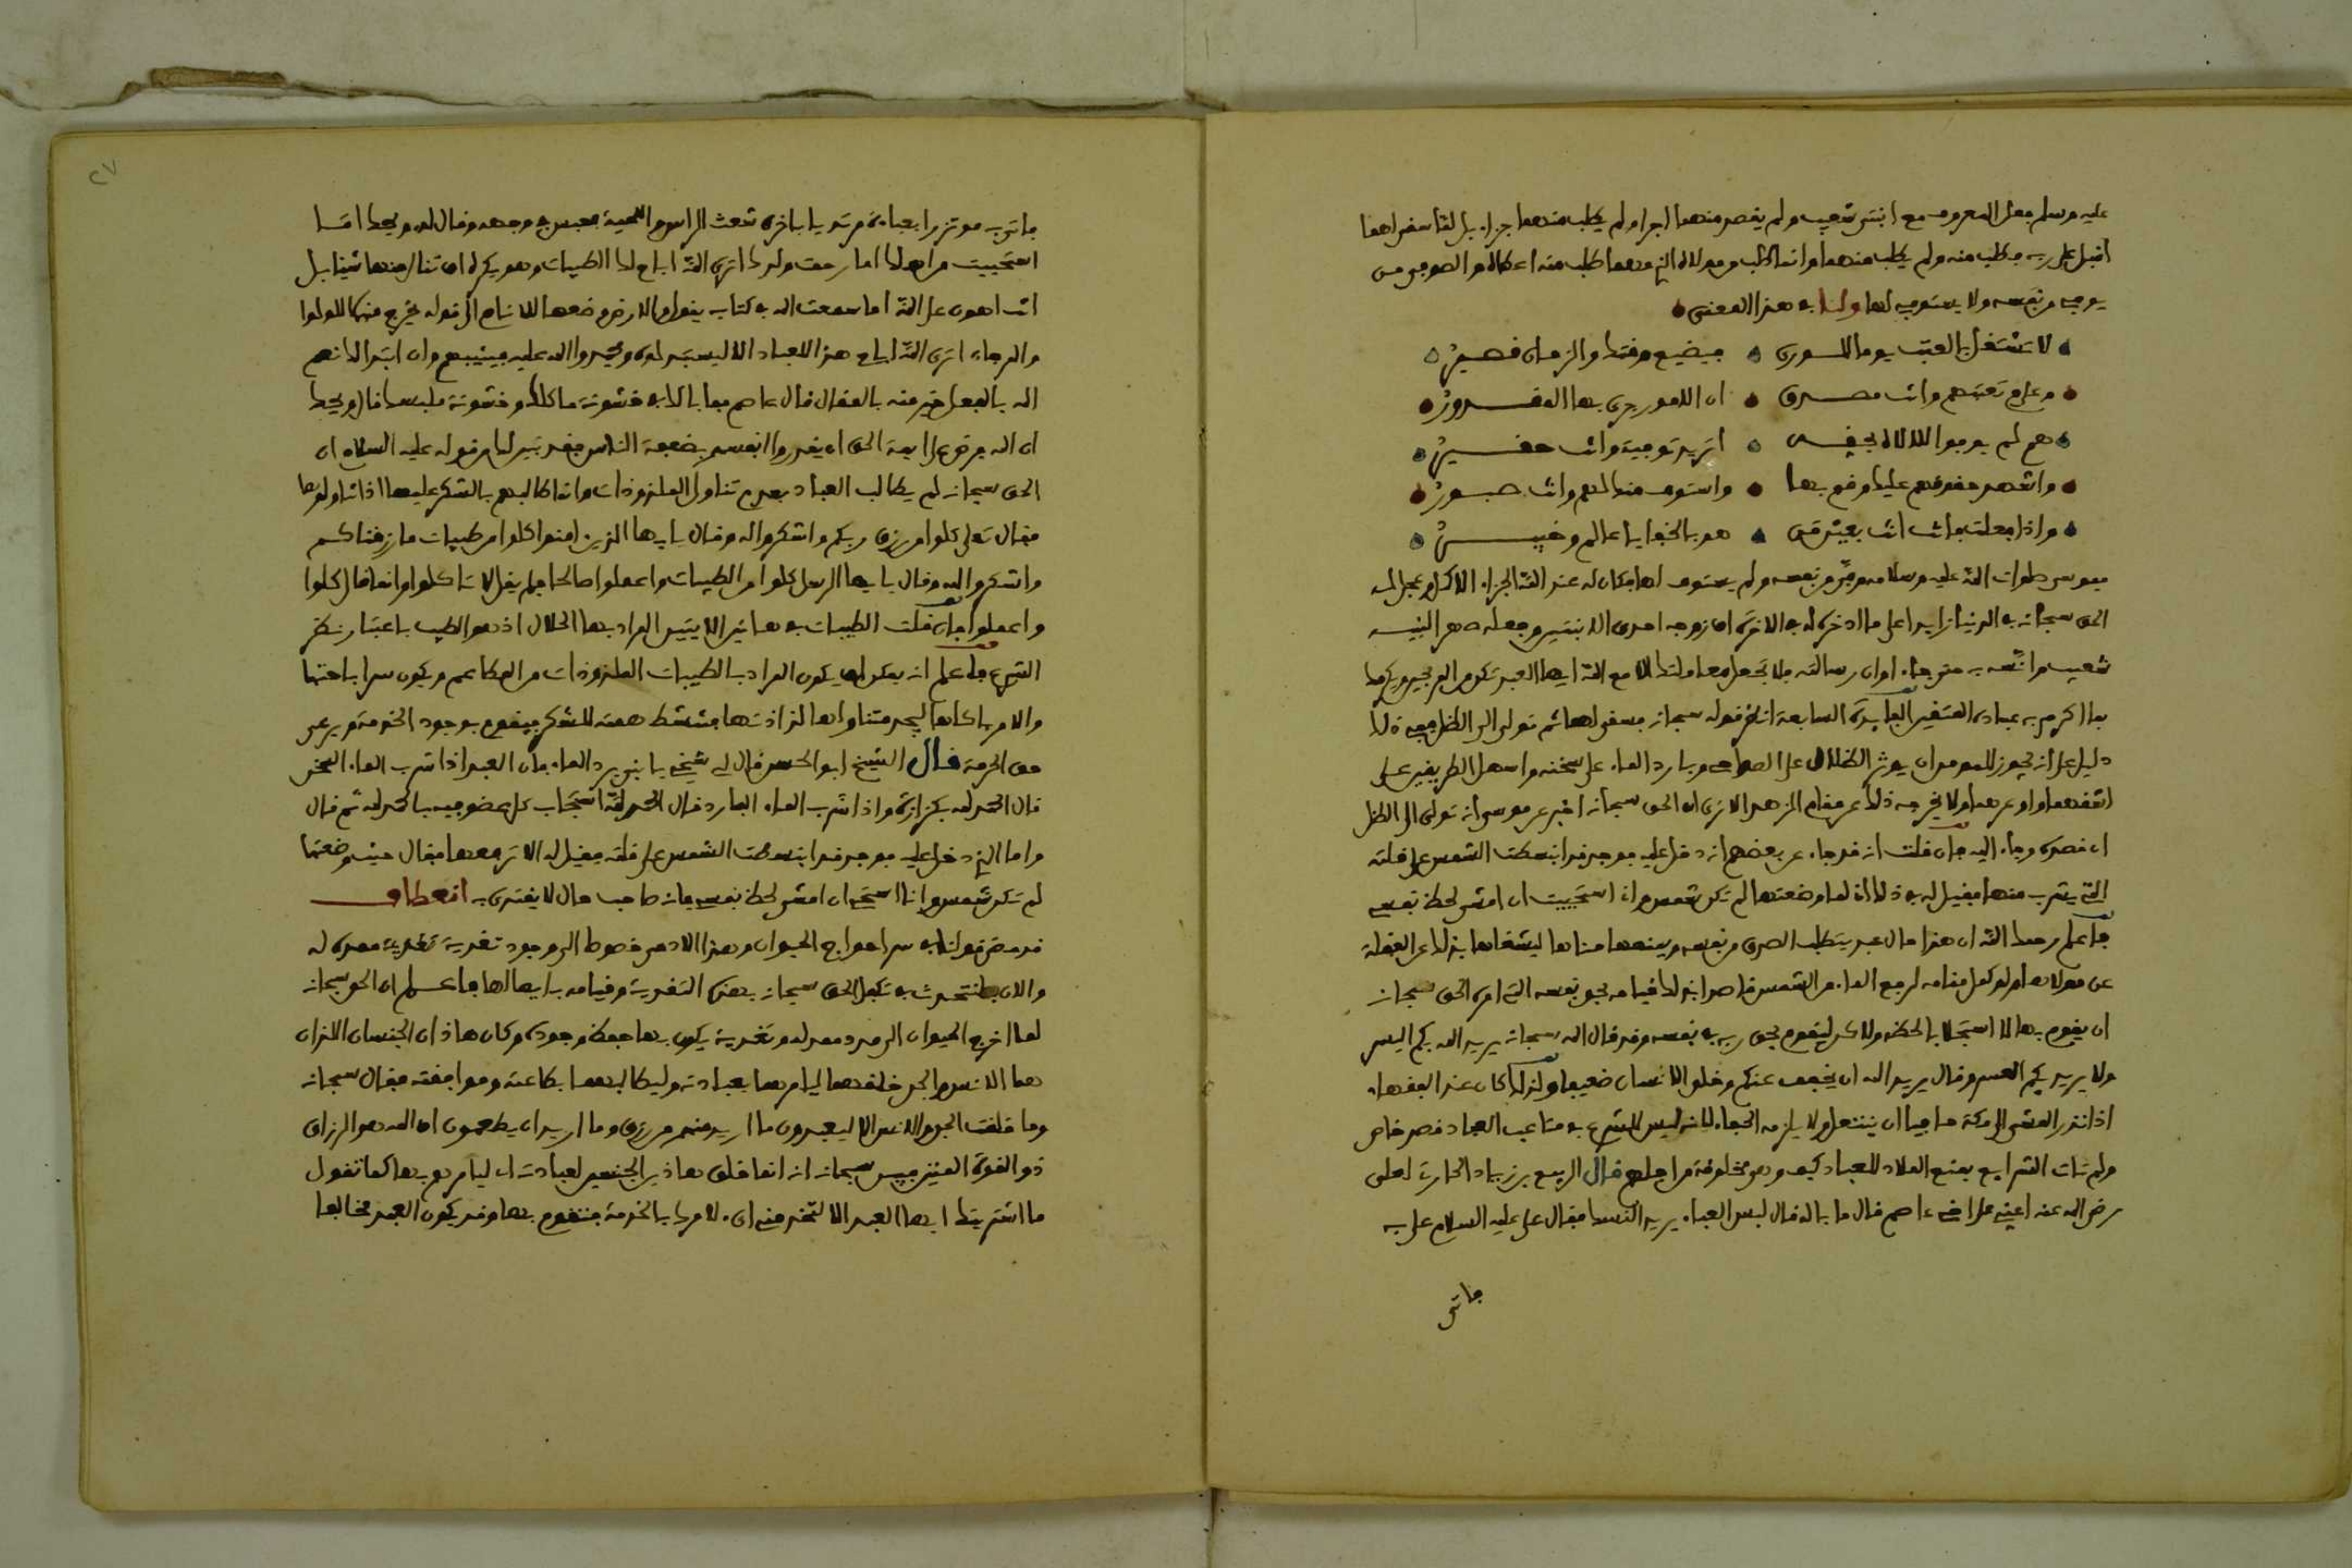 عليه وسلم فعل المعروف مع ابنتي شعيب ولم يقصد منهما اجرا ولم يطلب منهما جزاء بل لما سقى لهما
اقبل على ربه فطلب منه ولم يطلب منهما وانما طلب من مولاه الذي مهما طلب منه اعطاه والصوفي من
يوفي من نفسه ولا يستوفي لها ولنا في هذا المعنى
لا تشتغل بالعتب يوما للورى فيضيع وقتك والزمان قصير
وعلام تعتبهم وانت مصدق ان الامور جرى بها المقدور
هم لم يوفوا للاله بحقه اتريد توفية وانت حقير
واشهد حقوقهم عليك وقم بها واستوف منك لهم وانت صبور
واذا فعلت فانت انت بعين من هو بالخفايا عالم وخبير
فموسى صلوات الله عليه وسلامه وفى من نفسه ولم يستوف لها فكان له عند الله الجزاء الاكمل وعجل له
الحق سبحانه في الدنيا زايدا على ما ادخره له في الاخرة ان زوجه احدى الابنتين وجعله صهر النبيه
شعيب وانسه به حتى جاء اوان رسالته فلا تجعل معاملتك الا مع الله ايها العبد تكن من الرابحين ويكرمك
بما اكرم به عباده المتقين الفايدة السابعة انظر قوله سبحانه فسقى لهما ثم تولى الى الظل ففي ذلك
دليل على انه يجوز للمومن ان يوثر الظلال على الضواحي وبارد الماء على سخنه واسهل الطريقين على
اشقهما واوعرهما ولا يخرجه ذلك عن مقام الزهد الا ترى ان الحق سبحانه اخبر عن موسى انه تولى الى الظل
اي قصده وجاء اليه فان قلت انه قد جاء عن بعضهم انه دخل عليه فوجد قد انبسطت الشمس على قلته
التي يشرب منها فقيل له في ذلك فقال لما وضعتها لم تكن شمس وانا استحييت ان امشي لحظ نفسي
فاعلم رحمك الله ان هذا حال عبد يتطلب الصدق من نفسه ويمنعها مناها ليشغلها بذلك عن الغفلة
عن مولاها ولو كمل مقامه لرفع الماء من الشمس قاصدا بذلك قيامه بحق نفسه التي امره الحق سبحانه
ان يقوم بها لا استجلابا لحظه ولاكن ليقوم بحق ربه في نفسه وقد قال الله سبحانه يريد الله بكم اليسر
ولا يريد بكم العسر وقال يريد الله ان يخفف عنكم وخلق الانسان ضعيفا ولذلك كان عند الفقهاء
اذا نذر المشي الى مكة حافيا ان ينتعل ولا يلزمه الحفاء لانه ليس للشرع في متاعب العباد قصد خاص
ولم تات الشرايع بمنع الملاذ للعباد كيف وهي مخلوقة من اجلهم قال الربيع بن زياد الحارثي لعلى
رضي الله عنه اعدني على اخي عاصم قال ما باله قال لبس العباء يريد النسك فقال علي عليه السلام علي به
فاتى
٢٧
فاتي به موتزرا بعباءة مرتديا باخرى شعث الراس واللحية فعبس في وجهه وقال له ويحك اما
استحييت من اهلك اما رحمت ولدك اترى الله اباح لك الطيبات وهو يكره ان تنال منها شيئا بل
انت اهون على الله اما سمعت الله في كتابه يقول والارض وضعها للانام الى قوله يخرج منهما اللولوا
والمرجان اترى الله اباح هذا للعباد الا ليبتذلوه ويحمدوا الله عليه فيثيبهم وان ابتذالك نعم
الله بالفعل خير منه بالمقال قال عاصم فما بالك في خشونة ماكلك وخشونة ملبسك قال ويحك
ان الله فرض على ايمة الحق ان يقدروا انفسهم بضعفة الناس فقد تبين لك من قوله عليه السلام ان
الحق سبحانه لم يطالب العباد بعدم تناول الملذوذات وانما طالبهم بالشكر عليها اذا تناولوها
فقال تعلى كلوا من رزق ربكم واشكروا له وقال يايها الذين امنوا كلوا من طيبات ما رزقناكم
واشكروا لله وقال يايها الرسل كلوا من الطيبات واعملوا صالحا فلم يقل لا تاكلوا وانما قال كلوا
واعملوا فان قلت الطيبات في هاتين الايتين المراد بها الحلال اذ هو الطيب باعتبار نظر
الشرع فاعلم انه يمكن ان يكون المراد بالطيبات الملذوذات من المطاعم ويكون سر اباحتها
والامر باكلها ليجد متناولها لذاذتها فتنشط همته للشكر فيقوم بوجود الخدمة ويرعى
حق الحرمة قال الشيخ ابو الحسن قال لي شيخي يا بني برد الماء فان العبد اذا شرب الماء السخن
قال الحمد لله بكزازة واذا شرب الماء البارد فقال الحمد لله استجاب كل عضو فيه بالحمد لله ثم قال
واما الذي دخل عليه فوجد قد انبسطت الشمس على قلته فقيل له الا ترفعها فقال حين وضعتها
لم تكن شمس وانا استحي ان امشي لحظ نفسي فانه صاحب حال لا يقتدى به انعطاف
قد مضى قولنا في سر احواج الحيوان وهذا الادمي خصوصا الى وجود تغذية ممدة له
والان نتحدث في تكفل الحق سبحانه بهذه التغذية وقيامه بايصالها فاعلم ان الحق سبحانه
لما احوج الحيوان الى مدد ممد له وتغذية يكون بها حفظ وجوده وكان هاذان الجنسان اللذان
هما الانس والجن خلقهما ليامرهما بعبادته وليطالبهما بطاعته وموافقته فقال سبحانه
وما خلقت الجن والانس الا ليعبدون ما اريد منهم من رزق وما اريد ان يطعمون ان الله هو الرزاق
ذو القوة المتين فبين سبحانه انه انما خلق هاذين الجنسين لعبادته اي ليامرهم بها كما تقول
ما اشتريتك ايها العبد الا لتخدمني اي لامرك بالخدمة فتقوم بها وقد يكون العبد مخالفا